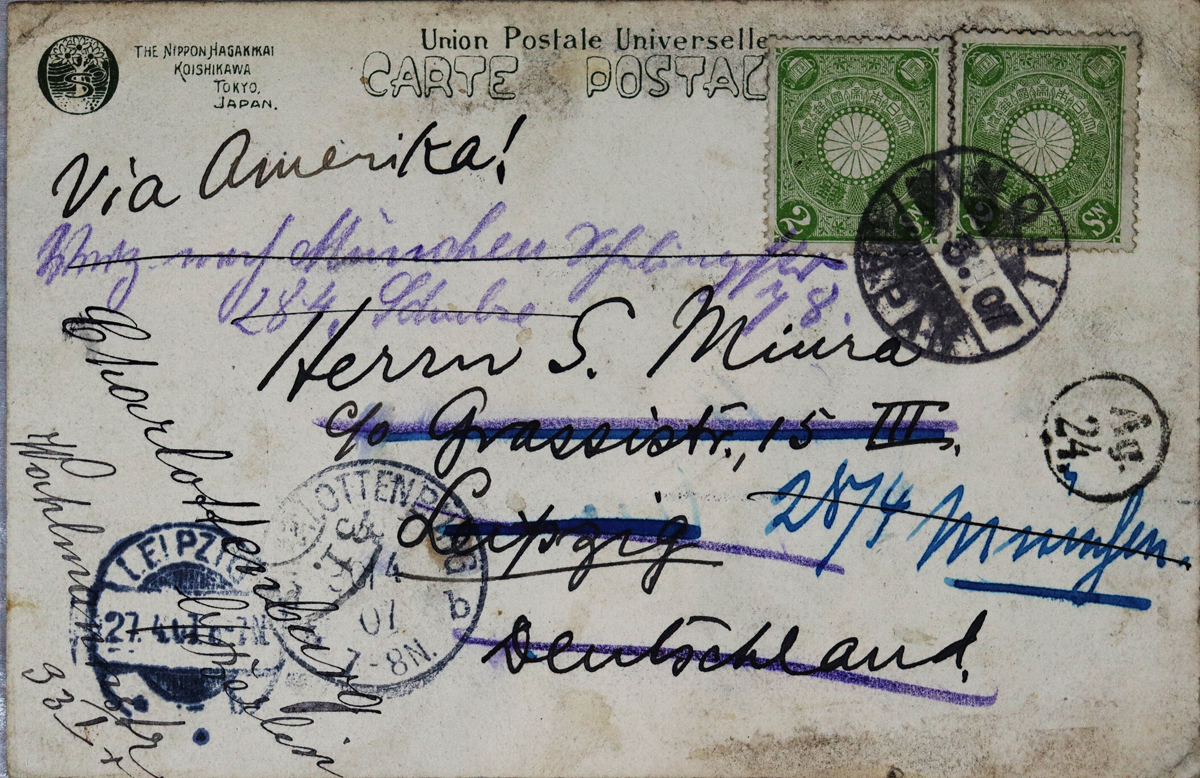 THE NIPPON HAGAKIKAI
KOISHIKAWA
TOKYO,
JAPAN.
Union Postale Universelle
CARTE POSTAL
2 Sn.
2 Sn.
Via Amerika!
nach München
284, Schulze
MOJI
3. 07
JAPAN
Herrn S. Miura
c/o Grassistr., 15 III.
Leipzig
Deutschland.
28/4 München.
AU.
24.
Charlottenburg
33 I
LEIPZIG
27.4.07. 7N
CHARLOTTENBURG
07
7-8N.
b